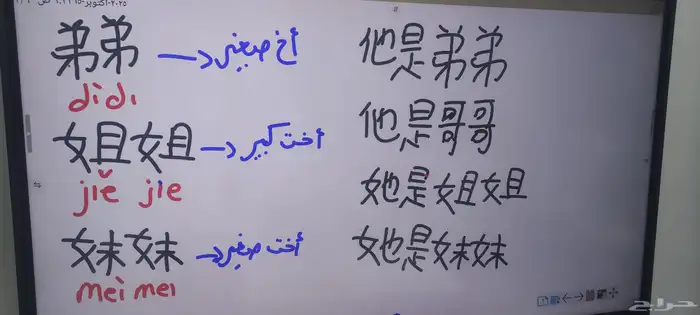 弟弟 → أخ صغير
didi
姐姐 → أخت كبير
jiě jie
妹妹 → أخت صغير
mèi mei
他是弟弟
他是哥哥
她是姐姐
她是妹妹
حراج